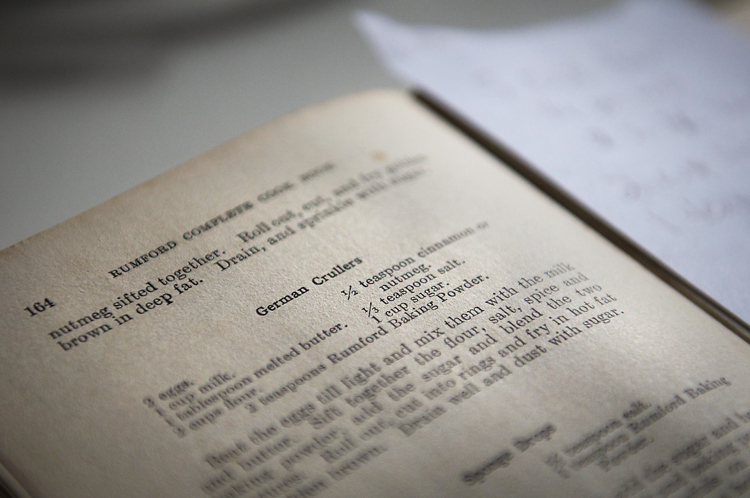 164 RUMFORD COMPLETE COOK BOOK
nutmeg sifted together. Roll out, cut, and fry
brown in deep fat. Drain, and sprinkle with sugar.
German Crullers
2 eggs.
1 cup milk.
1 tablespoon melted butter.
3 cups flour.
½ teaspoon cinnamon or
nutmeg.
⅓ teaspoon salt.
1 cup sugar.
2 teaspoons Rumford Baking Powder.
Beat the eggs till light and mix them with the milk
and butter. Sift together the flour, salt, spice and
baking powder, add the sugar and blend the two
mixtures. Roll out, cut into rings and fry in hot fat
brown. Drain well and dust with sugar.
Sponge Drops
teaspoon salt.
teaspoon Rumford Baking
Powder.